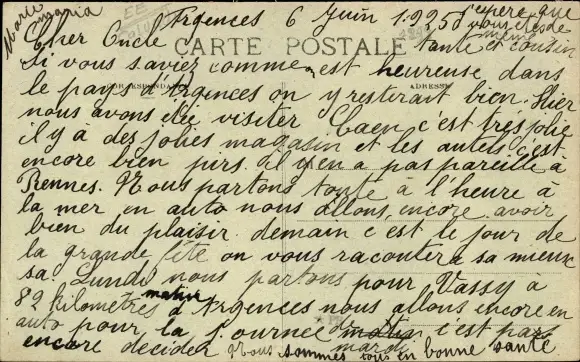 Argences 6 Juin 1925
j'espère que
vous êtes de
même
Marie
maria
Cher Oncle
tante et cousin
CARTE POSTALE
si vous saviez comme on est heureuse dans
CORRESPONDANCE
ADRESSE
le pays d'Argences on y resterait bien. Hier
nous avons étée visiter Caen c'est très jolie
il y à des jolies magasin et les autels c'est
encore bien pirs. il y en a pas pareille à
Rennes. Nous partons toute à l'heure à
la mer en auto nous allons encore avoir
bien du plaisir demain c'est le jour de
la grande fête on vous racontera sa mieux
sa. Lundi nous partons pour Vassy à
82 kilometres d'Argences nous allons encore en
matin
auto pour la journée c'est pas
mardi
encore decider Nous sommes tous en bonne santé